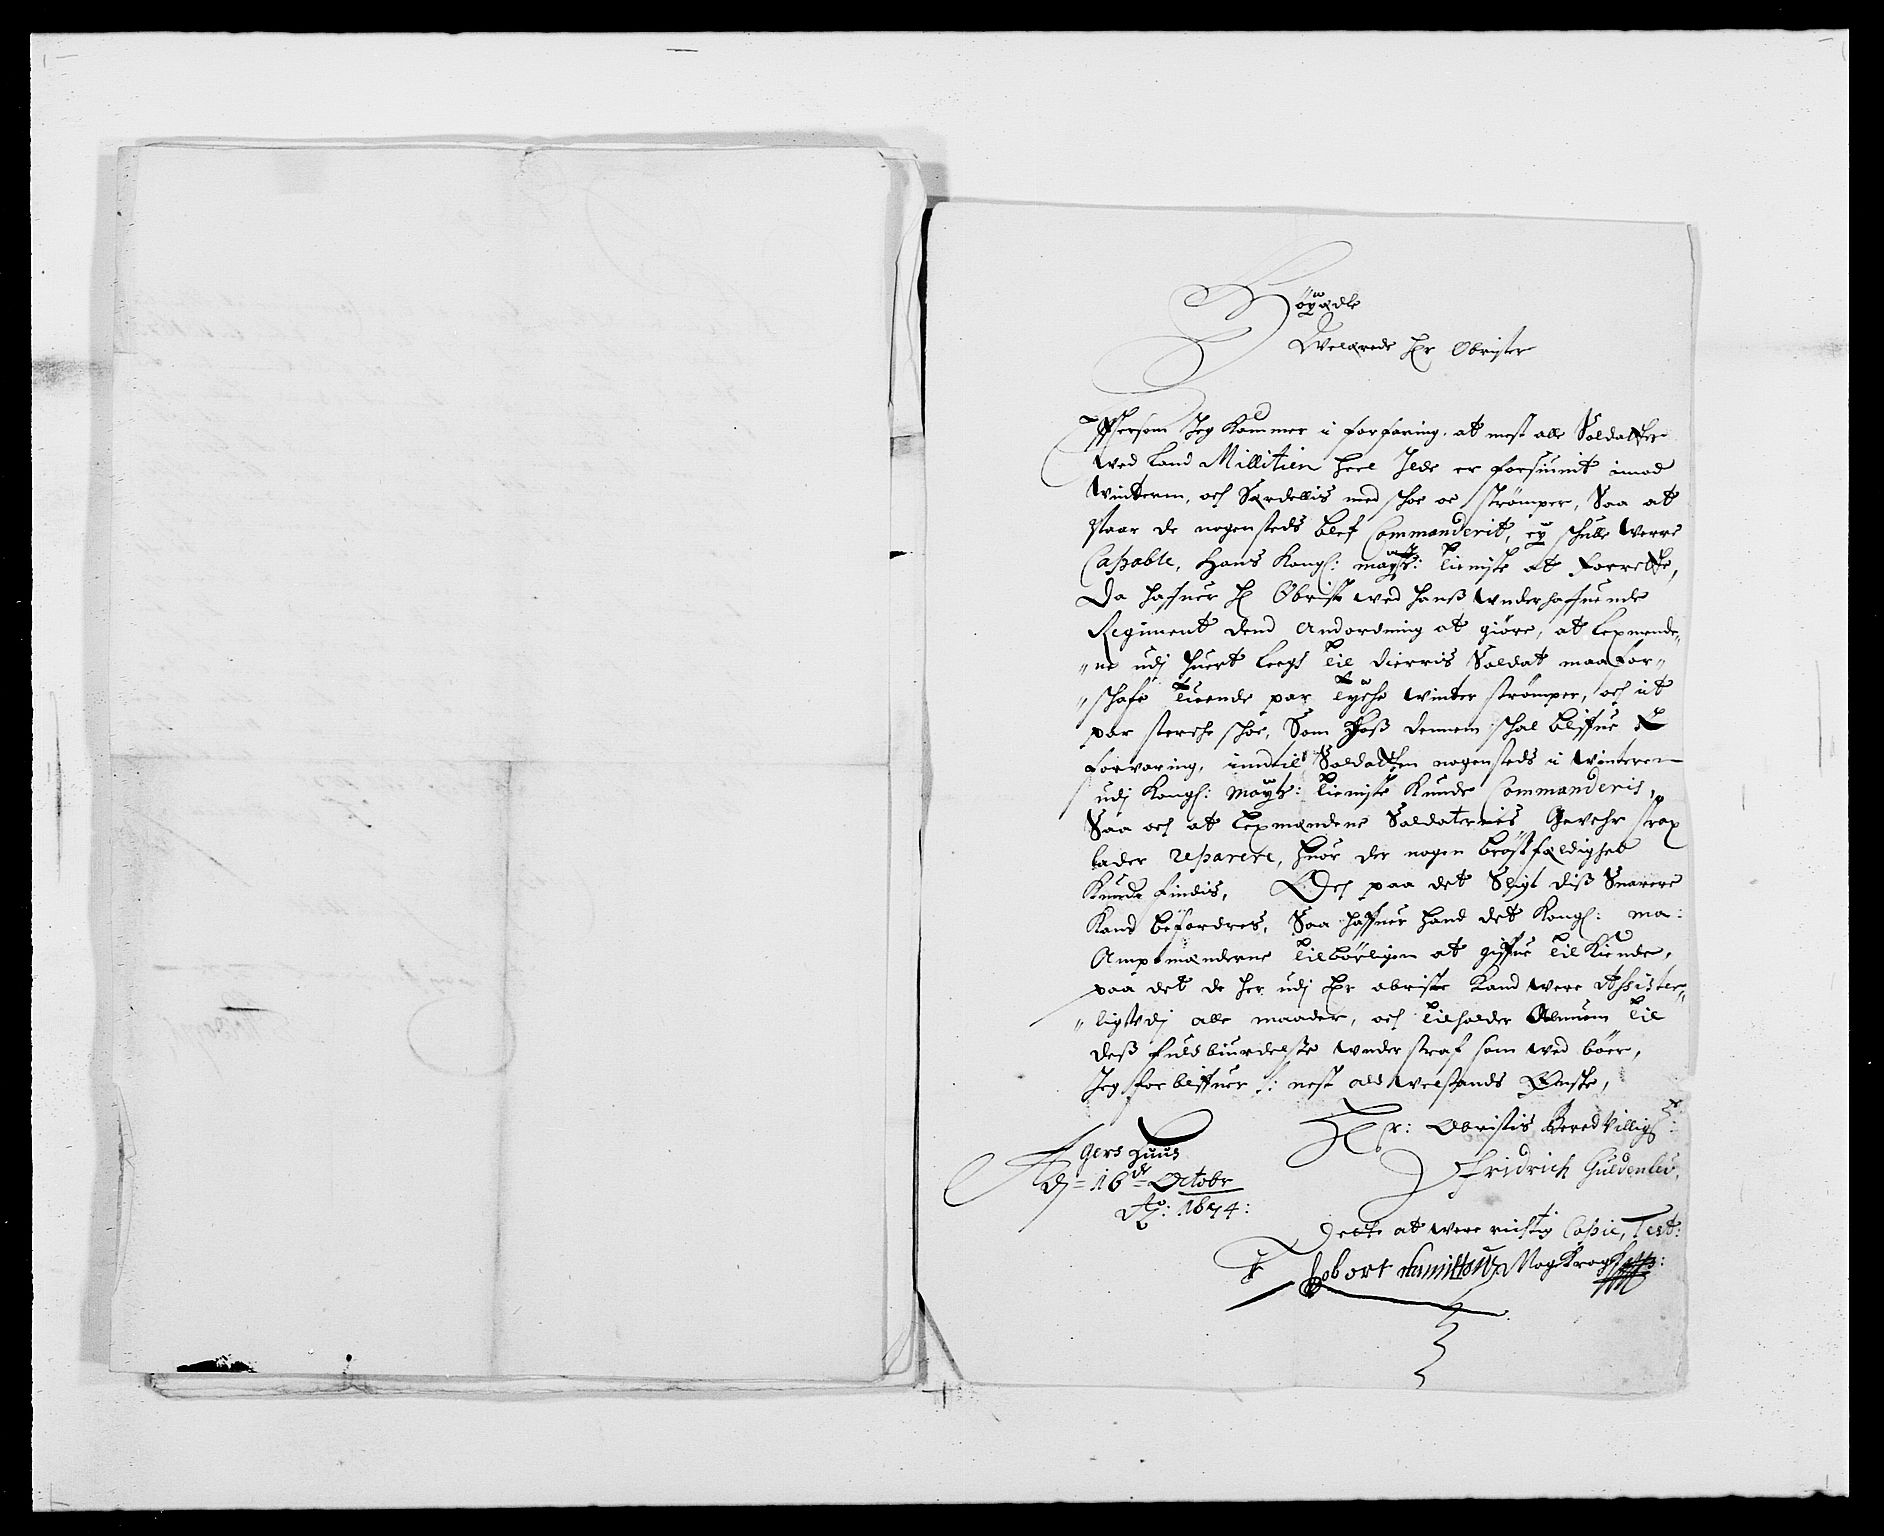 Høyædle
Welærede Hr Obrister
Effersom Jeg kommer i forfaring, at mest alle Soldatter
wed Land Millitien heel Ilde er forsiunit imod
Winteren, och Særdellis med schoe oc strømper, Saa at
naar de nogensteds blef Commanderit, ey schulle werre
Capable, Hans Kongl: Mayts: tieniste at Forrette,
Da hafuer Hl Obrist wed hanß wnderhafuende
Regiment dend Andordning at giøre, at Lexmende-
ne udj huert Legd til dierris Soldat maa for-
schafe tuende par tyche winter strømper, och it
par sterche schoe, Som hoß dennem schal blifue i
forvaring, indtil Soldatten nogensteds i winteren
udj Kongl: Mayts: tieniste kunde Commanderis,
Saa och at Lexmændene Soldaternis Gevehr strax
lader reparere, huor der nogen brøstfældighed
kunde findis, Och paa det Sligt diß Snarere
kand befordres, Saa haffuer hand det Kongl: Ma:
Amptmænderne tilbørligen at giffue tilkiende,
paa det de her udj Hr obriste kand were Assister-
lig udj alle maader, och tilholder Almuen til
deß fuldbiurdelse wnder straf som wed bør,
Jeg forbliffuer : nest ald welstands Ønske,
Hr: Obristis Beredvilligste:
Fridrich Güldenlew,
Agers Huus
dj = 16de = Octobr
Ao: 1674:
Dette at were richtig Copie, Test:
Robert Hamilton